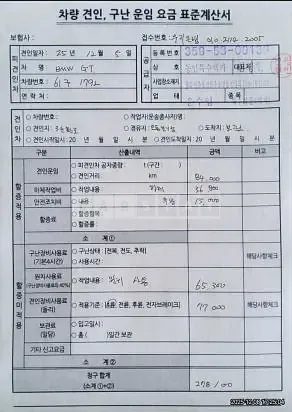 차량 견인, 구난 운임 요금 표준계산서
보험사 :
접수번호 : 010 2112 2005
견인일자 : 25년 12월 5일
차 종 : BMW GT
차량번호 :
연 락 처 :
공급자
등록번호
상 호
대표자
사업장소재지
업 태
종목
견인자
차량번호 :
작업자(운송종사자)명 :
견인지 :
경유지 :
도착지 :
견인시작일시 : 20 년 월 일 시 분
견인도착일시 : 20 년 월 일 시 분
구분
산출내역
금액
비고
할증적용
견인운임
피견인차 공차중량 : t (구간 )
견인거리: km
84,000
하체작업비
작업내용
36,900
안전조치비
내용
15,000
할증료
할증항목:
할증률:
소 계①
할증미적용
구난장비사용료
(기본4시간)
구난상태 : [전복, 전도, 추락]
사용시간 :
해당사항체크
작업내용 :
65,300
견인장비사용료
(돌리)
적용기준 : [전륜, 후륜, 전자브레이크]
77,000
해당사항체크
보관료
(일당)
입고일시 :
총 ( )일간 보관
기타 신고요금
소 계②
청구 합계
(소계 ①+②)
278,100